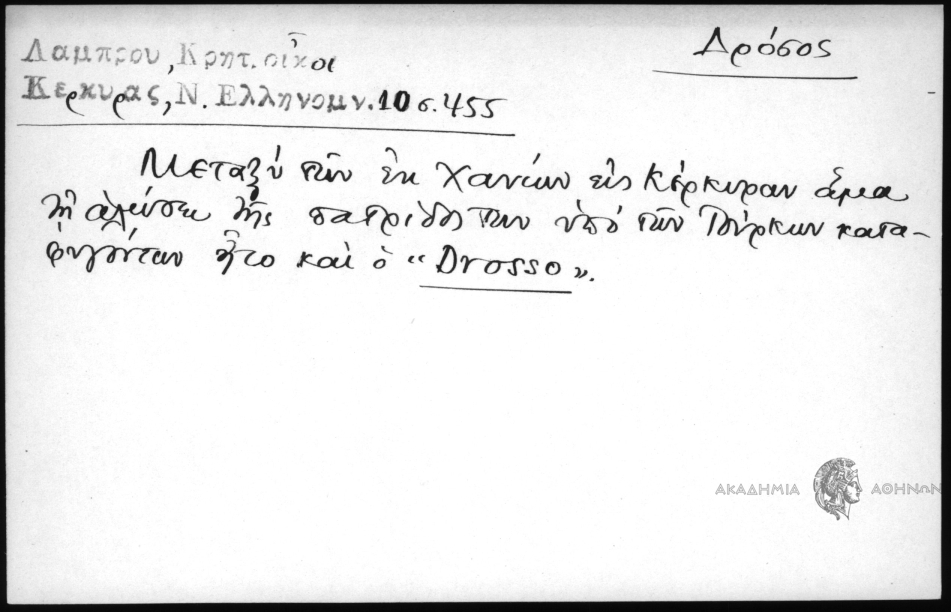 Δρόσος
Λαμπρου, Κρητ. οἶκοι
Κερκυρας, Ν. Ελληνομν. 10 σ. 455
Μεταξύ τῶν ἐκ Χανίων εἰς Κέρκυραν ἅμα
τῇ ἁλώσει τῆς πατρίδος των ὑπό τῶν Τούρκων κατα-
φυγόντων ἦτο καὶ ὁ "Drosso".
ΑΚΑΔΗΜΙΑ ΑΘΗΝΩΝ